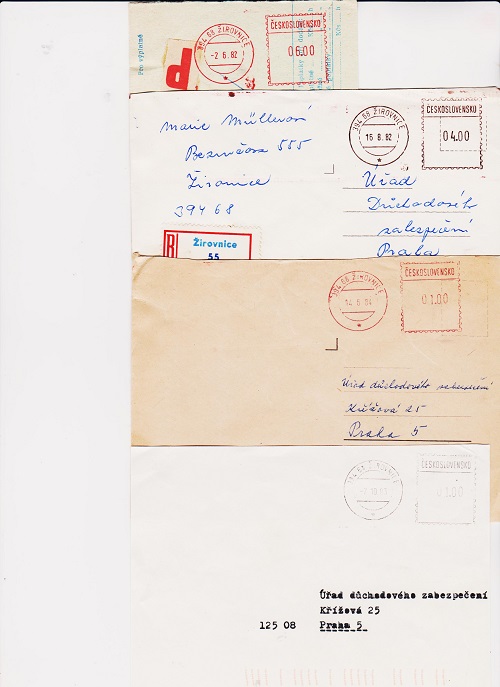 Pro výplatné
394 68 ŽIROVNICE
-2 6. 82
ČESKOSLOVENSKO
06.00
p
Marie Müllerová
Bezručova 555
Žirovnice
394 68
394 68 ŽIROVNICE
16 8. 82
ČESKOSLOVENSKO
04.00
Úřad
Důchodového
zabezpečení
Praha
R
Žirovnice
55
394 68 ŽIROVNICE
ČESKOSLOVENSKO
01.00
Úřad důchodového zabezpečení
Křížová 25
Praha 5
394 68 ŽIROVNICE
ČESKOSLOVENSKO
01.00
Úřad důchodového zabezpečení
Křížová 25
125 08 Praha 5